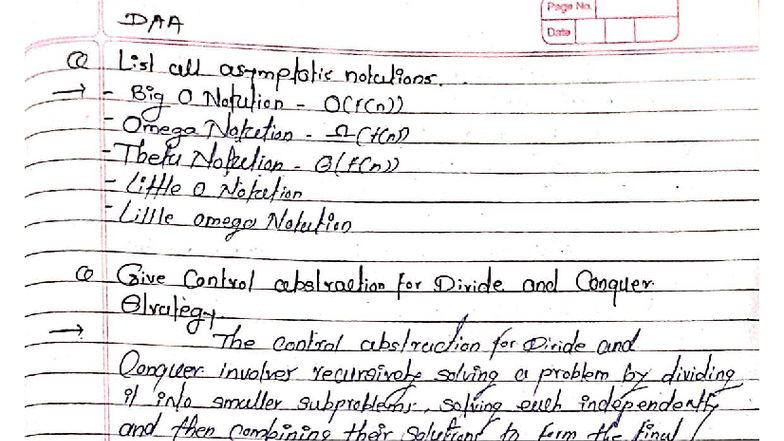 Page No.
Date
DAA
Q List all asymptotic notations.
→ - Big O Notation - O(f(n))
- Omega Notation - Ω(f(n))
- Theta Notation - Θ(f(n))
- Little O Notation
- Little omega Notation
Q Give Control abstraction for Divide and Conquer
Strategy.
→ The control abstraction for Divide and
Conquer involves recursively solving a problem by dividing
it into smaller subproblems, solving each independently
and then combining their solutions to form the final